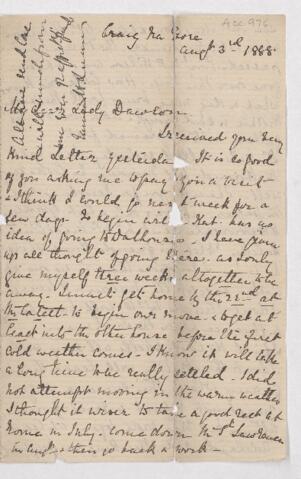 Acc 976
Craig na Gore
Augt 3rd 1888
My Dear Lady Dawson
I received your very
kind letter yesterday. It is so good
of you asking me to pay you a visit
& I think I would go next week for a
few days to begin with. Kat. has no
idea of going to Dalhousie. I have given
up all thought of going there. as I only
give myself three weeks altogether to be
away. I must get home by the 22nd at
the latest to begin our move & to get at
least into the other house before the first
cold weather comes. I know it will take
a long time to be really settled. I did
not attempt moving in the warm weather
I thought it wiser to take a good rest at
home in July. come down the St Lawrence
in Augt & then go back & work -
All here send love